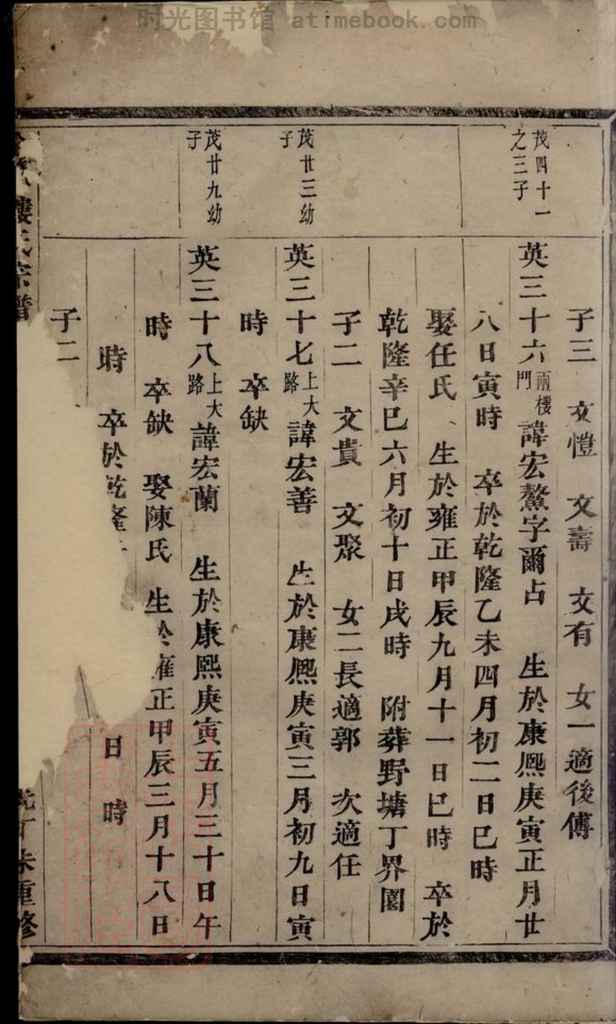 时光图书馆 atimebook.com
子三　文愷　文壽　文有　女一適後傅
茂四十一
之三子
英三十六雨樓門諱宏鰲字爾占　生於康熙庚寅正月廿
八日寅時　卒於乾隆乙未四月初二日巳時
娶任氏　生於雍正甲辰九月十一日巳時　卒於
乾隆辛巳六月初十日戌時　附葬野塘丁界園
子二　文貴　文聚　女二長適郭　次適任
茂廿三幼
子
英三十七上大路諱宏善　生於康熙庚寅三月初九日寅
時　卒缺
茂廿九幼
子
英三十八上大路諱宏蘭　生於康熙庚寅五月三十日午
時　卒缺　娶陳氏　生於雍正甲辰三月十八日
時　卒於乾隆　日　時
子二
樓氏宗譜
丁未重修